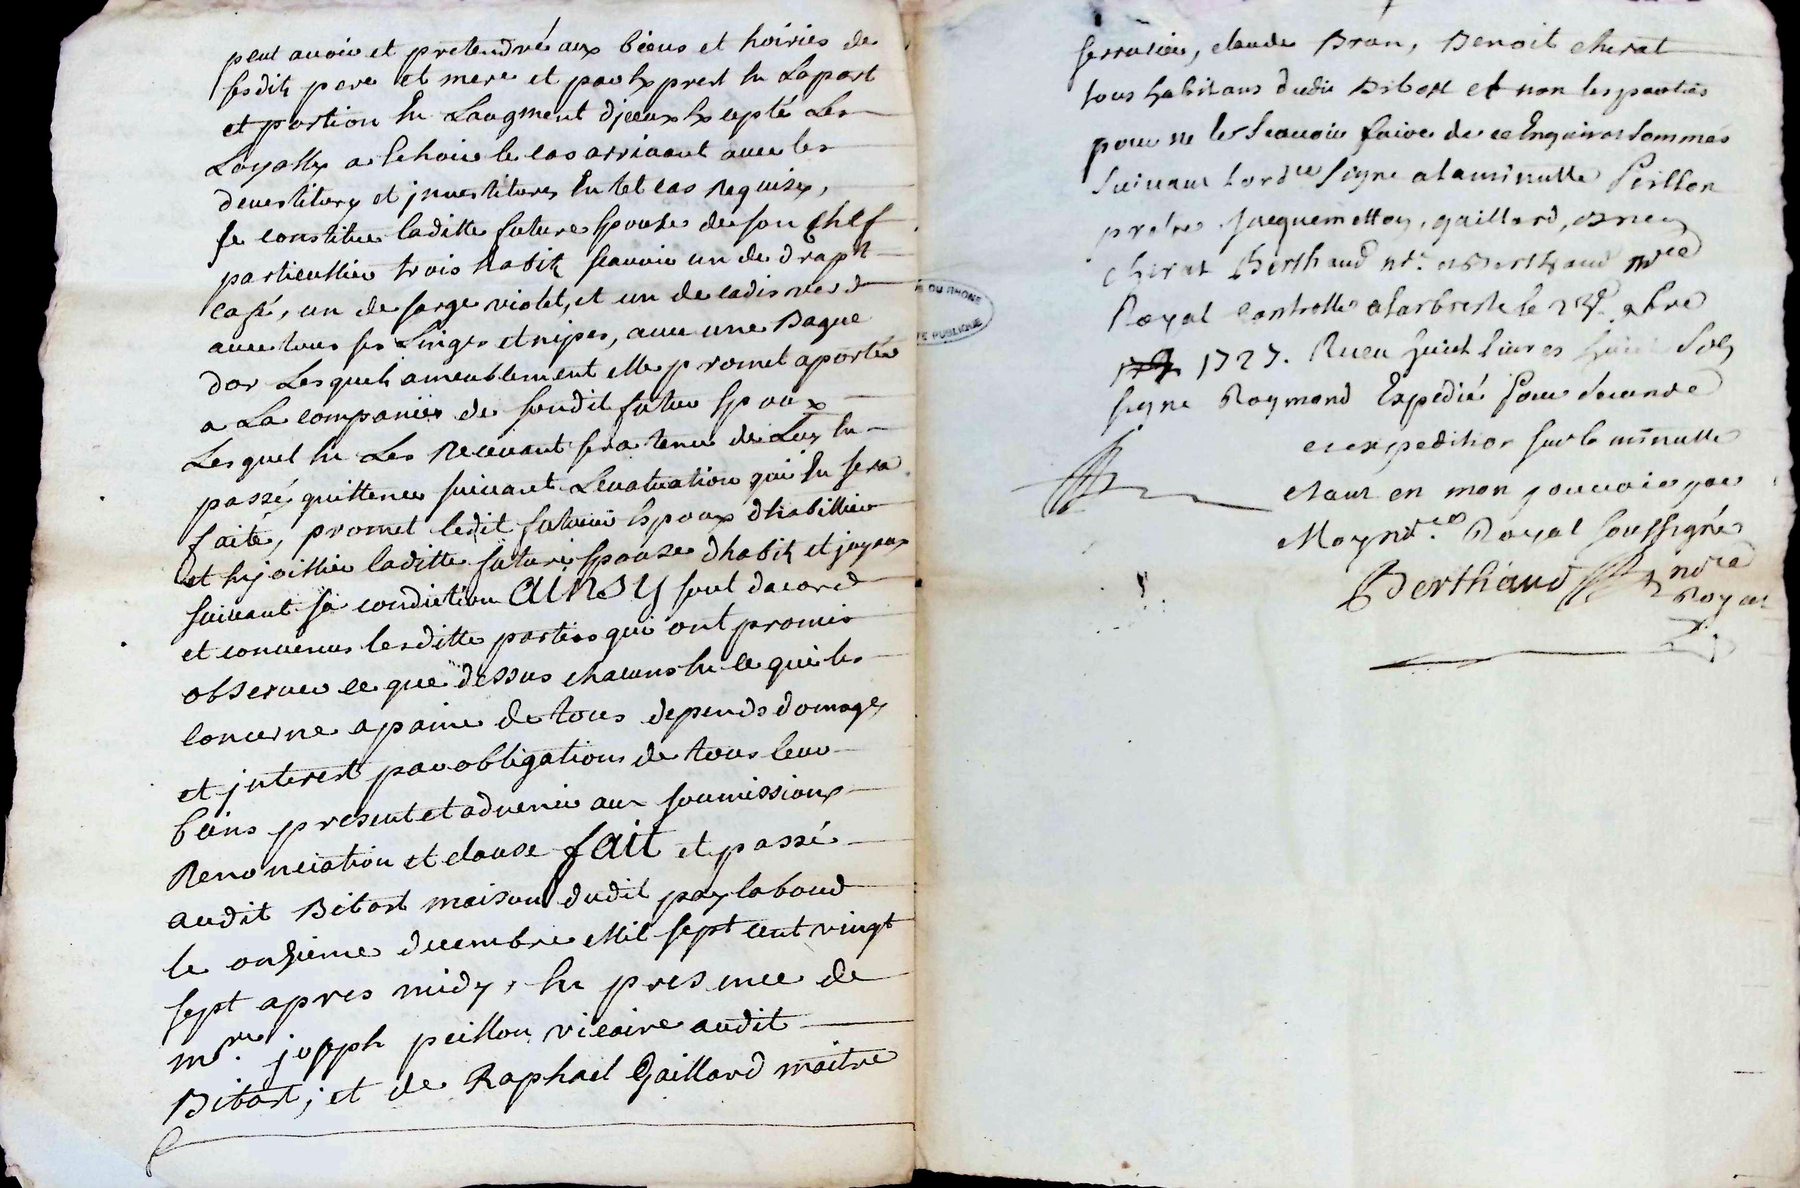 peut avoir et pretendre aux biens et hoiries de
sesdits pere et mere et par exprest en la part
et portion en laugment diceux excepté les
Loyally a echoir le cas arrivant avec les
devestitures et jnvestitures en tel cas requises,
se constitue laditte future epouse de son chef
particullier trois habits scavoir un de drapt
café, un de serge violet, et un de cadis verd
avec tous ses Linges et nipes, avec une Bague
dor Lesquels ameublement elle promet aporter
a La companiée de sondit futur epoux
Lesquel en Les Recevant sera tenu de Luy en
passé quittence suivant Levaluation qui en sera
faite, promet ledit futur epoux dhabillier
et enjoillier laditte future epouse dhabits et joyaux
suivant sa condiction AINSY sont dacord
et convenus lesditte parties qui ont promis
observer ce que dessus chacuns en ce qui les
concerne apaine de tous depends domages
et jnterest par obligations de tous leur
biens present et advenir aux soumissions
Renonciation et clause fait et passé
audit Bibost maison dudit paylaboud
le onzieme decembre Mil sept cent vingt
sept apres midy, en presence de
Mre. joseph peillon vicaire audit
Bibost, et de Raphael Gaillard maitre
serrurier, claude Bran, Benoit cherat
tous habitans dudit Bibost et non les parties
pour ne le scavoir faire de ce Enquis et sommés
suivant Lordce signe a la minutte Peillon
pretre Jacquemetton, gaillard,
cherat Berthaud ntre. et Berthaud nre
Royal Controllé a larbresle le xbre
1727. Receu huict livres sols
signe Raymond Expedié pour seconde
expedition sur la minutte
etant en mon pouvoir par
Moy Royal soussigné
Berthaud nre
Royal
DU RHONE
PUBLIQUE